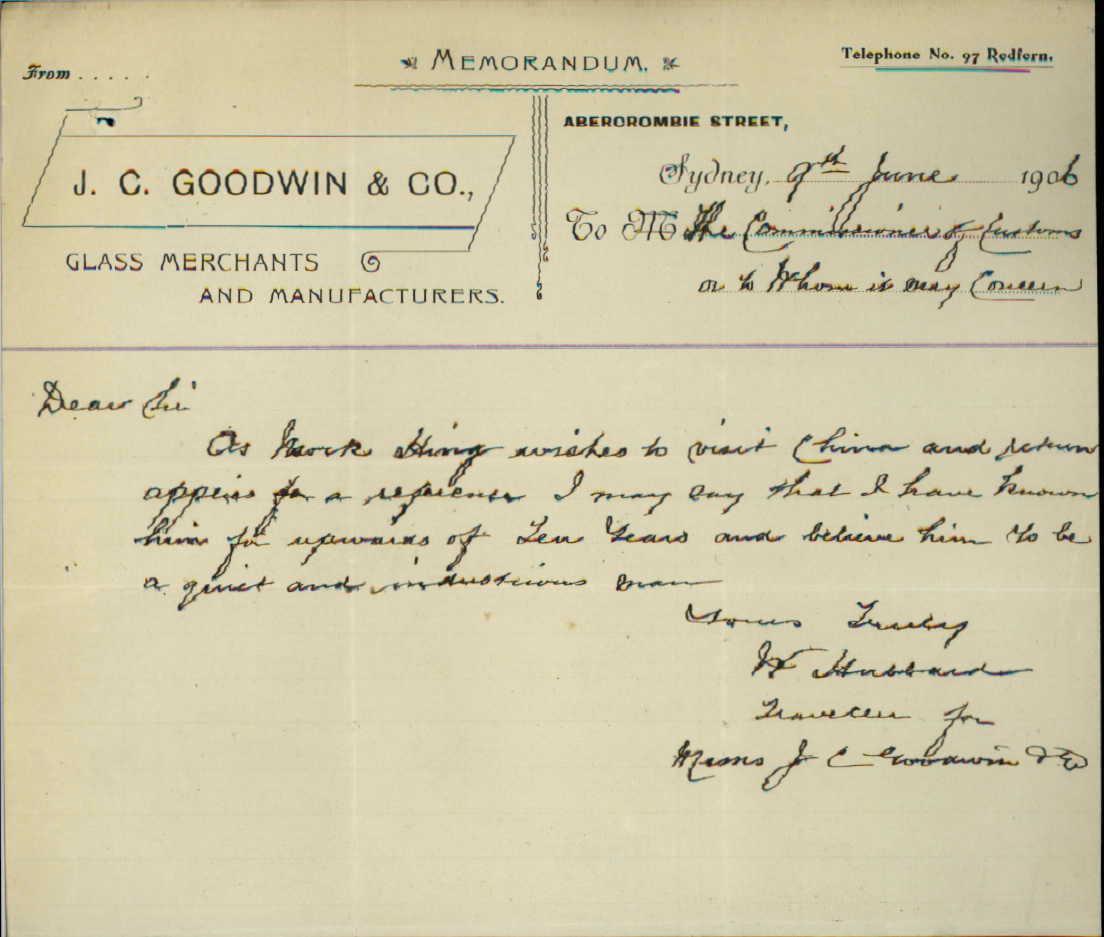 From . . . . .
MEMORANDUM.
Telephone No. 97 Redfern.
J. C. GOODWIN & CO.,
GLASS MERCHANTS
AND MANUFACTURERS.
ABERCROMBIE STREET,
Sydney, 9th June 1906
To M The Commissioner of Customs
or to Whom it may Concern
Dear Sir
As Kwok Hing wishes to visit China and return
appeis for a reference I may say that I have known
him for upwards of Ten Years and believe him to be
a quiet and industrious man
Yours Truly
W Hubbard
Traveller for
Messrs J C Goodwin & Co